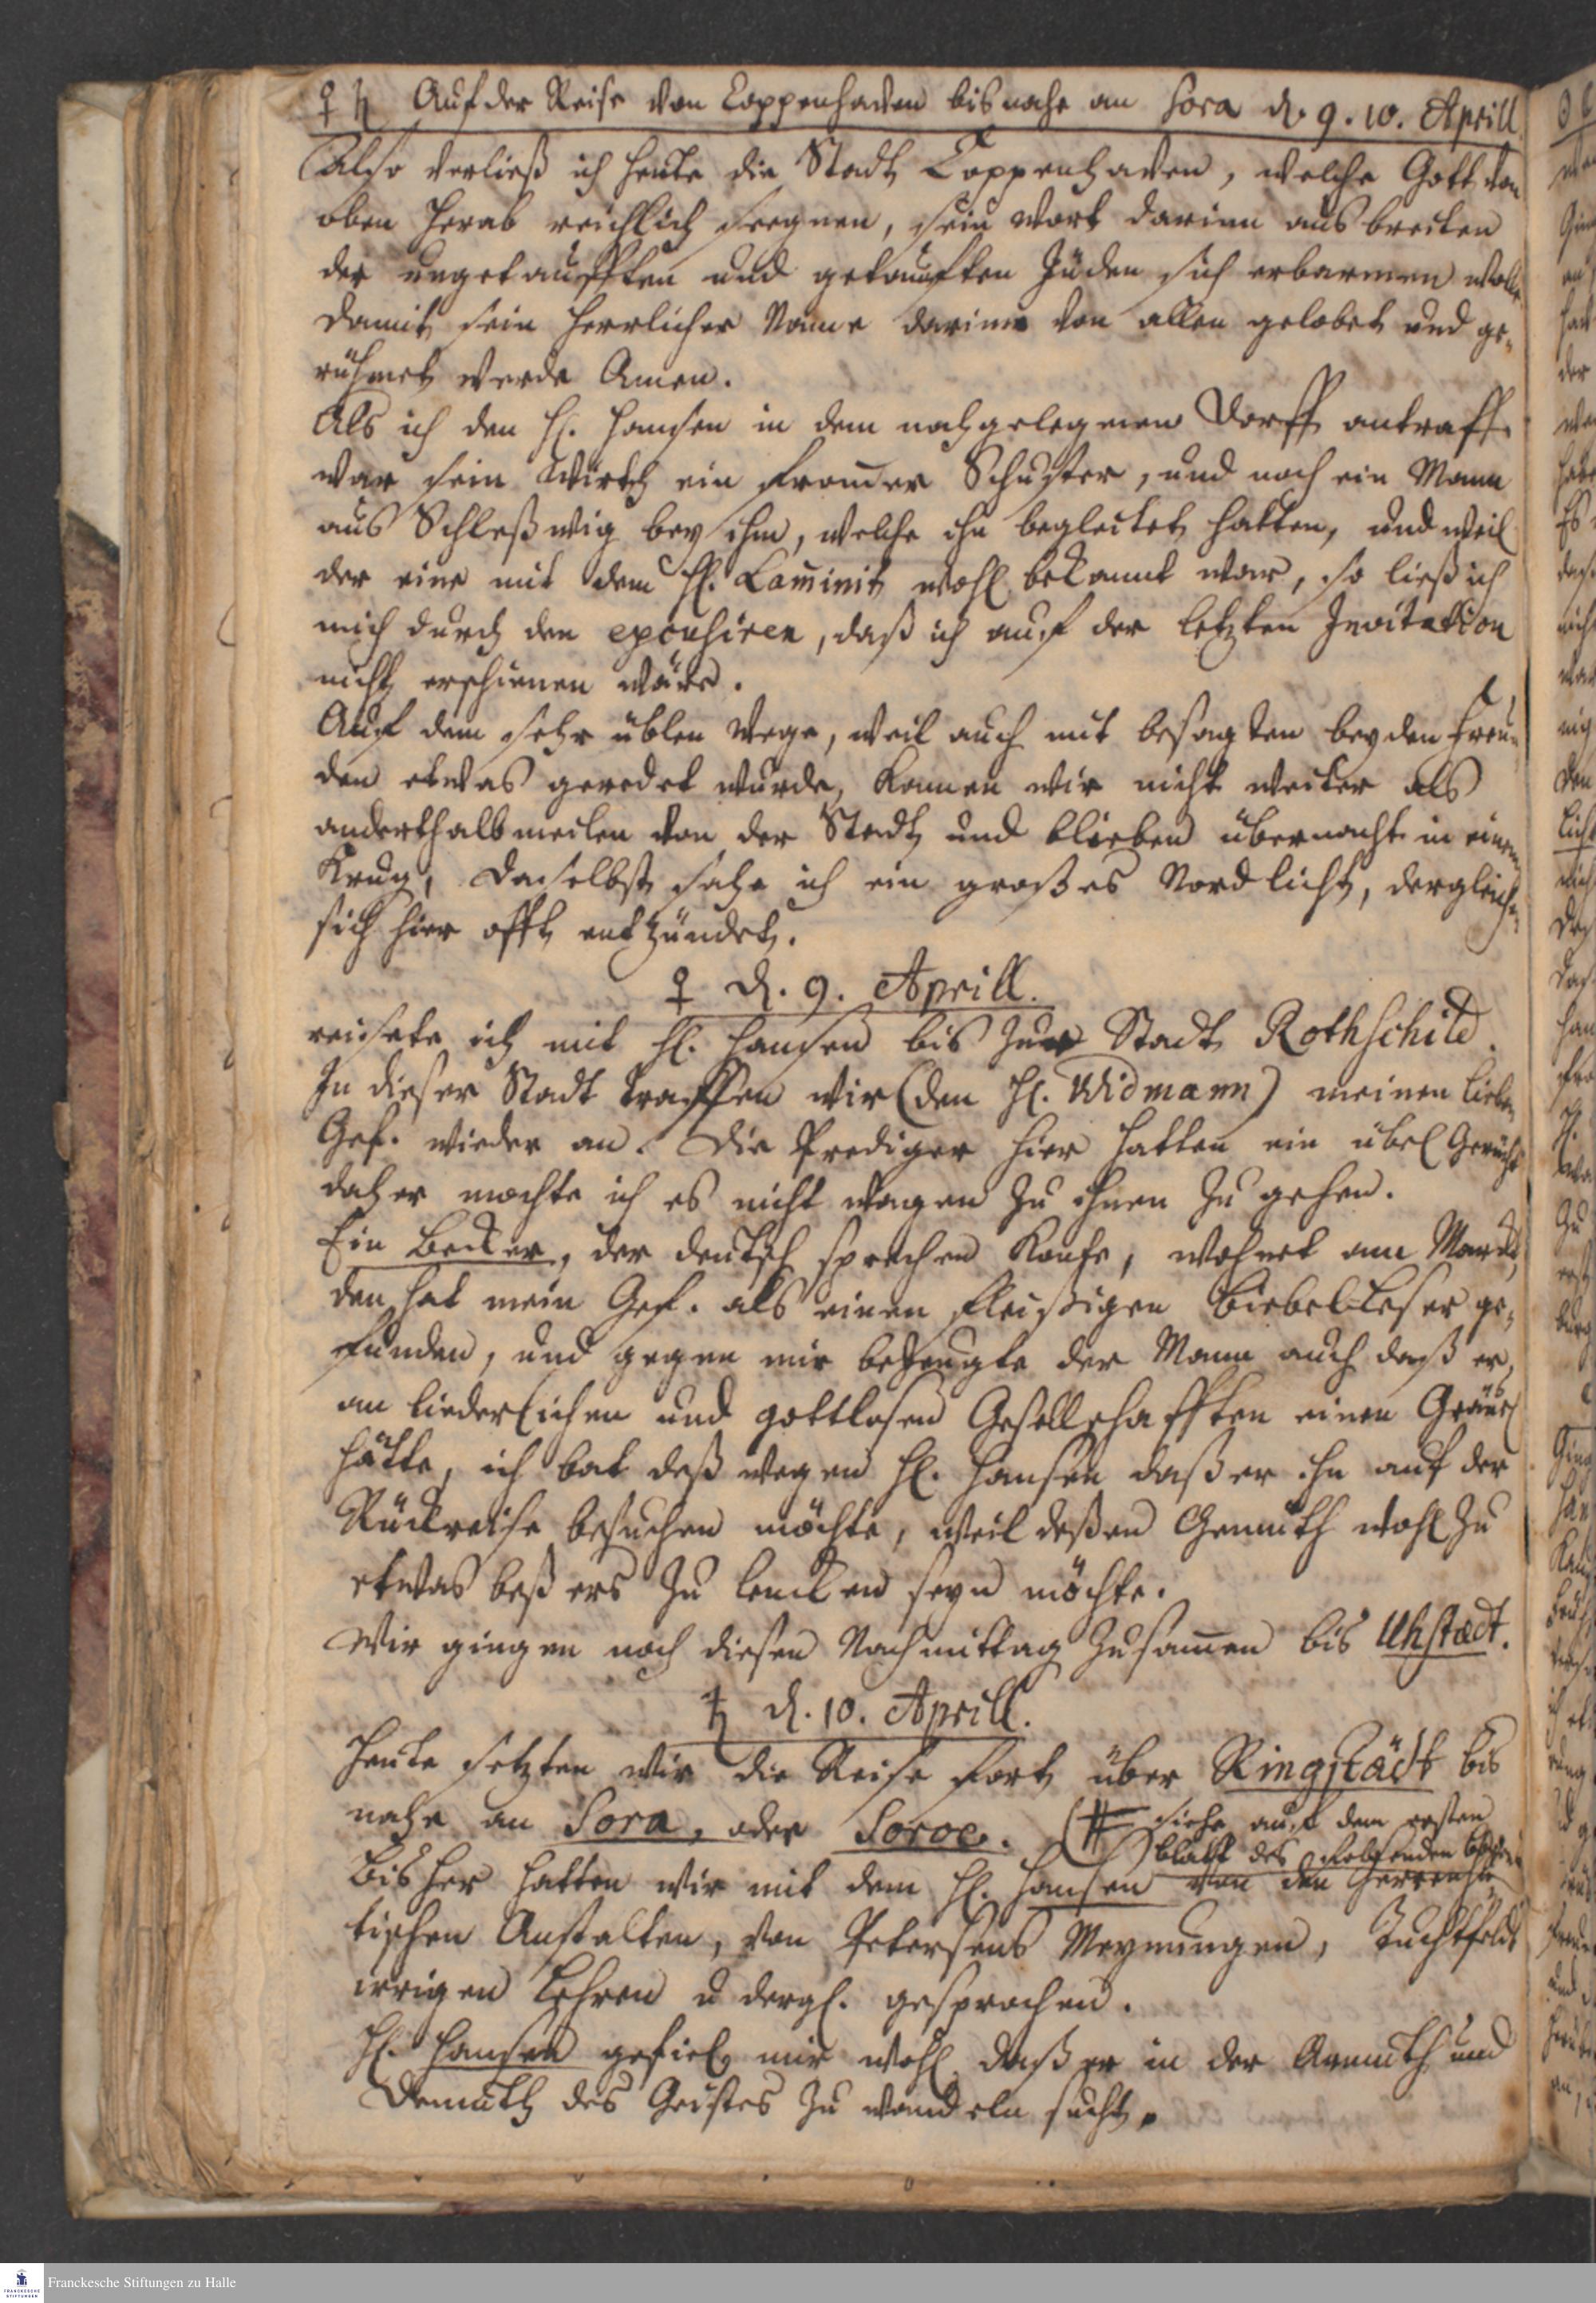 ♀ ♄ Auf der Reise von Coppenhaven bis nahe an Sora d. 9. 10. Aprill
Also verließ ich heute die Stadt Coppenhaven, welche Gott von
oben herab reichlich seegnen, sein Wort darinn ausbreiten
der ungetaufften und getaufften Jüden sich erbarmen wolle
damit sein herrlicher Name darinn von allen gelobet und ge-
rühmet werde Amen.
Als ich den H. Hansen in dem nahgelegenen Dorff antraff
war sein Wirth ein from̄er Schuster, und noch ein Mann
aus Schleßwig bey ihm, welche ihn begleitet hatten, und weil
der eine mit dem H. Laminit wohl bekannt war, so ließ ich
mich durch den excusiren, daß ich auf der letzten Invitation
nicht erschienen wäre.
Auf dem sehr üblen Wege, weil auch mit besagten beyden Freun-
den etwas geredet wurde, kamen wir nicht weiter als
anderthalb meilen von der Stadt und blieben übernacht in einem
Krug, daselbst sahe ich ein großes Nordlicht, dergleichen
sich hier offt entzündet.
♀ d. 9. Aprill.
reisete ich mit H. Hansen bis zur Stadt Rothschild.
In dieser Stadt traffen wir (den H. Widmann) meinen lieben
Gef. wieder an. Die Prediger hier hatten ein übel Gerücht
daher mochte ich es nicht wagen zu ihnen zu gehen.
Ein Becker, der deutsch sprechen konte, wohnet am Marckt,
den hat mein Gef. als einen fleißigen Biebel-Leser ge-
funden, und gegen mir bezeugte der Mann auch daß er
an liederlichen und gottlosen Gesellschafften einen Gräuel
hätte, ich bat deßwegen H. Hansen daß er ihn auf der
Rückreise besuchen möchte, weil deßen Gemüth wohl zu
etwas beßers zu lencken seyn möchte.
Wir gingen noch diesen Nachmittag zusam̄en bis Uhstædt.
♄ d. 10. Aprill.
Heute setzten wir die Reise fort über Ringstädt bis
nahe an Sora, oder Soroe. (# siehe auf dem ersten
blatt des folgenden
Bisher hatten wir mit dem H. Hansen von den Herrenhu-
tischen Anstalten, von Petersens Meynungen, Tuchtfelds
irrigen Lehren u dergl. gesprochen.
H. Hansen gefiel mir wohl daß er in der Armuth und
Demuth des Geistes zu wandeln sucht.
Franckesche Stiftungen zu Halle